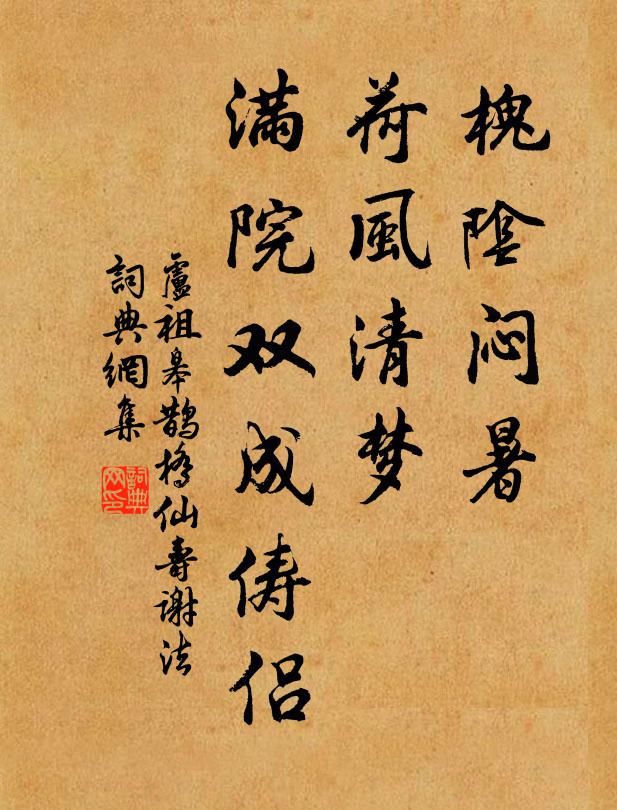 槐陰闷暑
荷風清梦
满院双成俦侣
盧祖皋鹊橋仙壽谢法
詞典網集
詞典網印